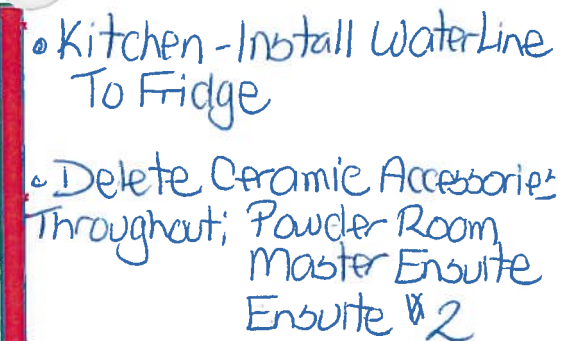 • Kitchen - Install WaterLine
To Fridge
• Delete Ceramic Accessories
Throughout; Powder Room
Master Ensuite
Ensuite # 2